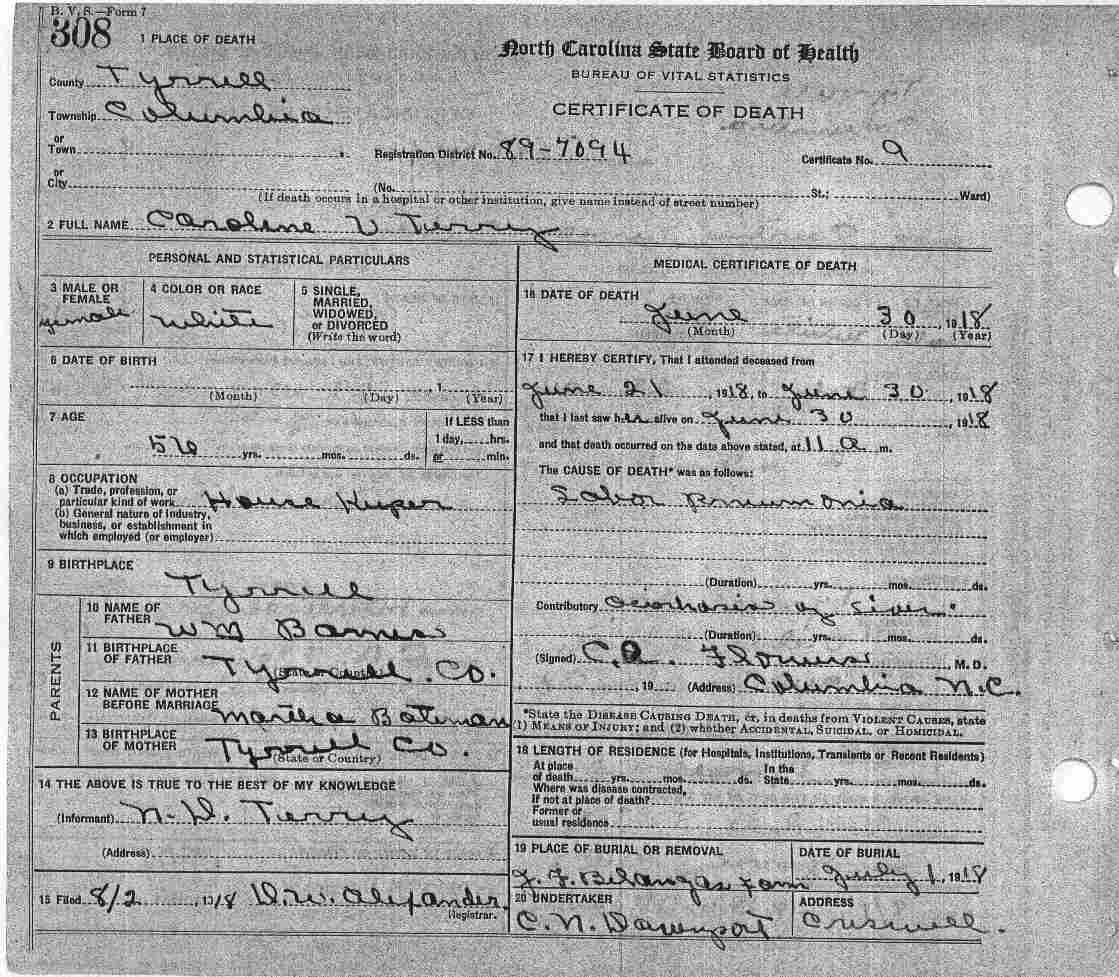 B. V. S.—Form 7
308
1 PLACE OF DEATH
North Carolina State Board of Health
BUREAU OF VITAL STATISTICS
CERTIFICATE OF DEATH
County Tyrrell
Township Columbia
or
Town
Registration District No. 89-7094
Certificate No. 9
or
City (No. St.; Ward)
(If death occurs in a hospital or other institution, give name instead of street number)
2 FULL NAME Caroline V Terry
PERSONAL AND STATISTICAL PARTICULARS
3 MALE OR FEMALE female
4 COLOR OR RACE White
5 SINGLE, MARRIED, WIDOWED, or DIVORCED (Write the word)
6 DATE OF BIRTH
, 1
(Month) (Day) (Year)
7 AGE
56 yrs. mos. ds.
If LESS than
1 day, hrs.
or min.
8 OCCUPATION
(a) Trade, profession, or
particular kind of work House Keeper
(b) General nature of industry,
business, or establishment in
which employed (or employer)
9 BIRTHPLACE
Tyrrell
PARENTS
10 NAME OF FATHER Wm Barnes
11 BIRTHPLACE OF FATHER Tyrrell Co.
12 NAME OF MOTHER BEFORE MARRIAGE Martha Bateman
13 BIRTHPLACE OF MOTHER Tyrrell Co.
(State or Country)
14 THE ABOVE IS TRUE TO THE BEST OF MY KNOWLEDGE
(Informant) N. D. Terry
(Address)
15 Filed 8/2, 1918 D. W. Alexander
Registrar.
MEDICAL CERTIFICATE OF DEATH
16 DATE OF DEATH
June 30, 1918
(Month) (Day) (Year)
17 I HEREBY CERTIFY, That I attended deceased from
June 21, 1918, to June 30, 1918
that I last saw her alive on June 30, 1918
and that death occurred on the date above stated, at 11 a m.
The CAUSE OF DEATH* was as follows:
Lobor Pneumonia
(Duration) yrs. mos. ds.
Contributory of Liver
(Duration) yrs. mos. ds.
(Signed) C. A. Flowers, M. D.
, 19 (Address) Columbia N.C.
*State the DISEASE CAUSING DEATH, or, in deaths from VIOLENT CAUSES, state
(1) MEANS OF INJURY; and (2) whether ACCIDENTAL, SUICIDAL, OR HOMICIDAL.
18 LENGTH OF RESIDENCE (for Hospitals, Institutions, Transients or Recent Residents)
At place In the
of death yrs. mos. ds. State yrs. mos. ds.
Where was disease contracted,
If not at place of death?
Former or
usual residence
19 PLACE OF BURIAL OR REMOVAL
J. F. Belangas farm
DATE OF BURIAL
July 1, 1918
20 UNDERTAKER
C. N. Davenport
ADDRESS
Creswell.